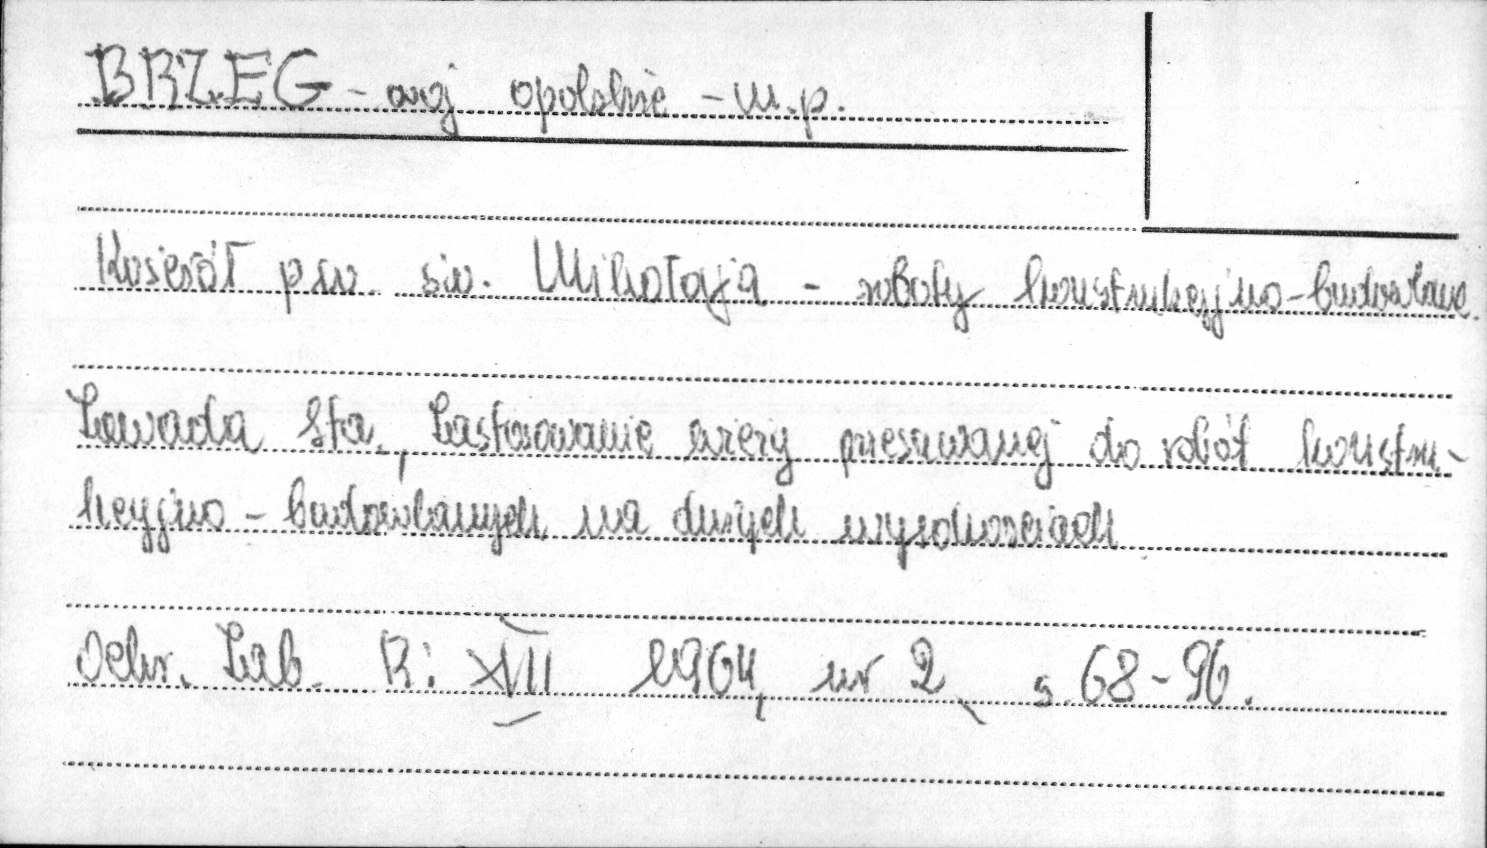 BRZEG - woj opolskie - m.p.
Kościół pw św. Mikołaja - roboty konstrukcyjno-budowlane.
Zawada Sta., Zastosowanie wieży przesuwanej do robót konstru-
kcyjno - budowlanych na dużych wysokościach
Ochr. Zab. R: XVII 1964, nr 2, s. 68-96.